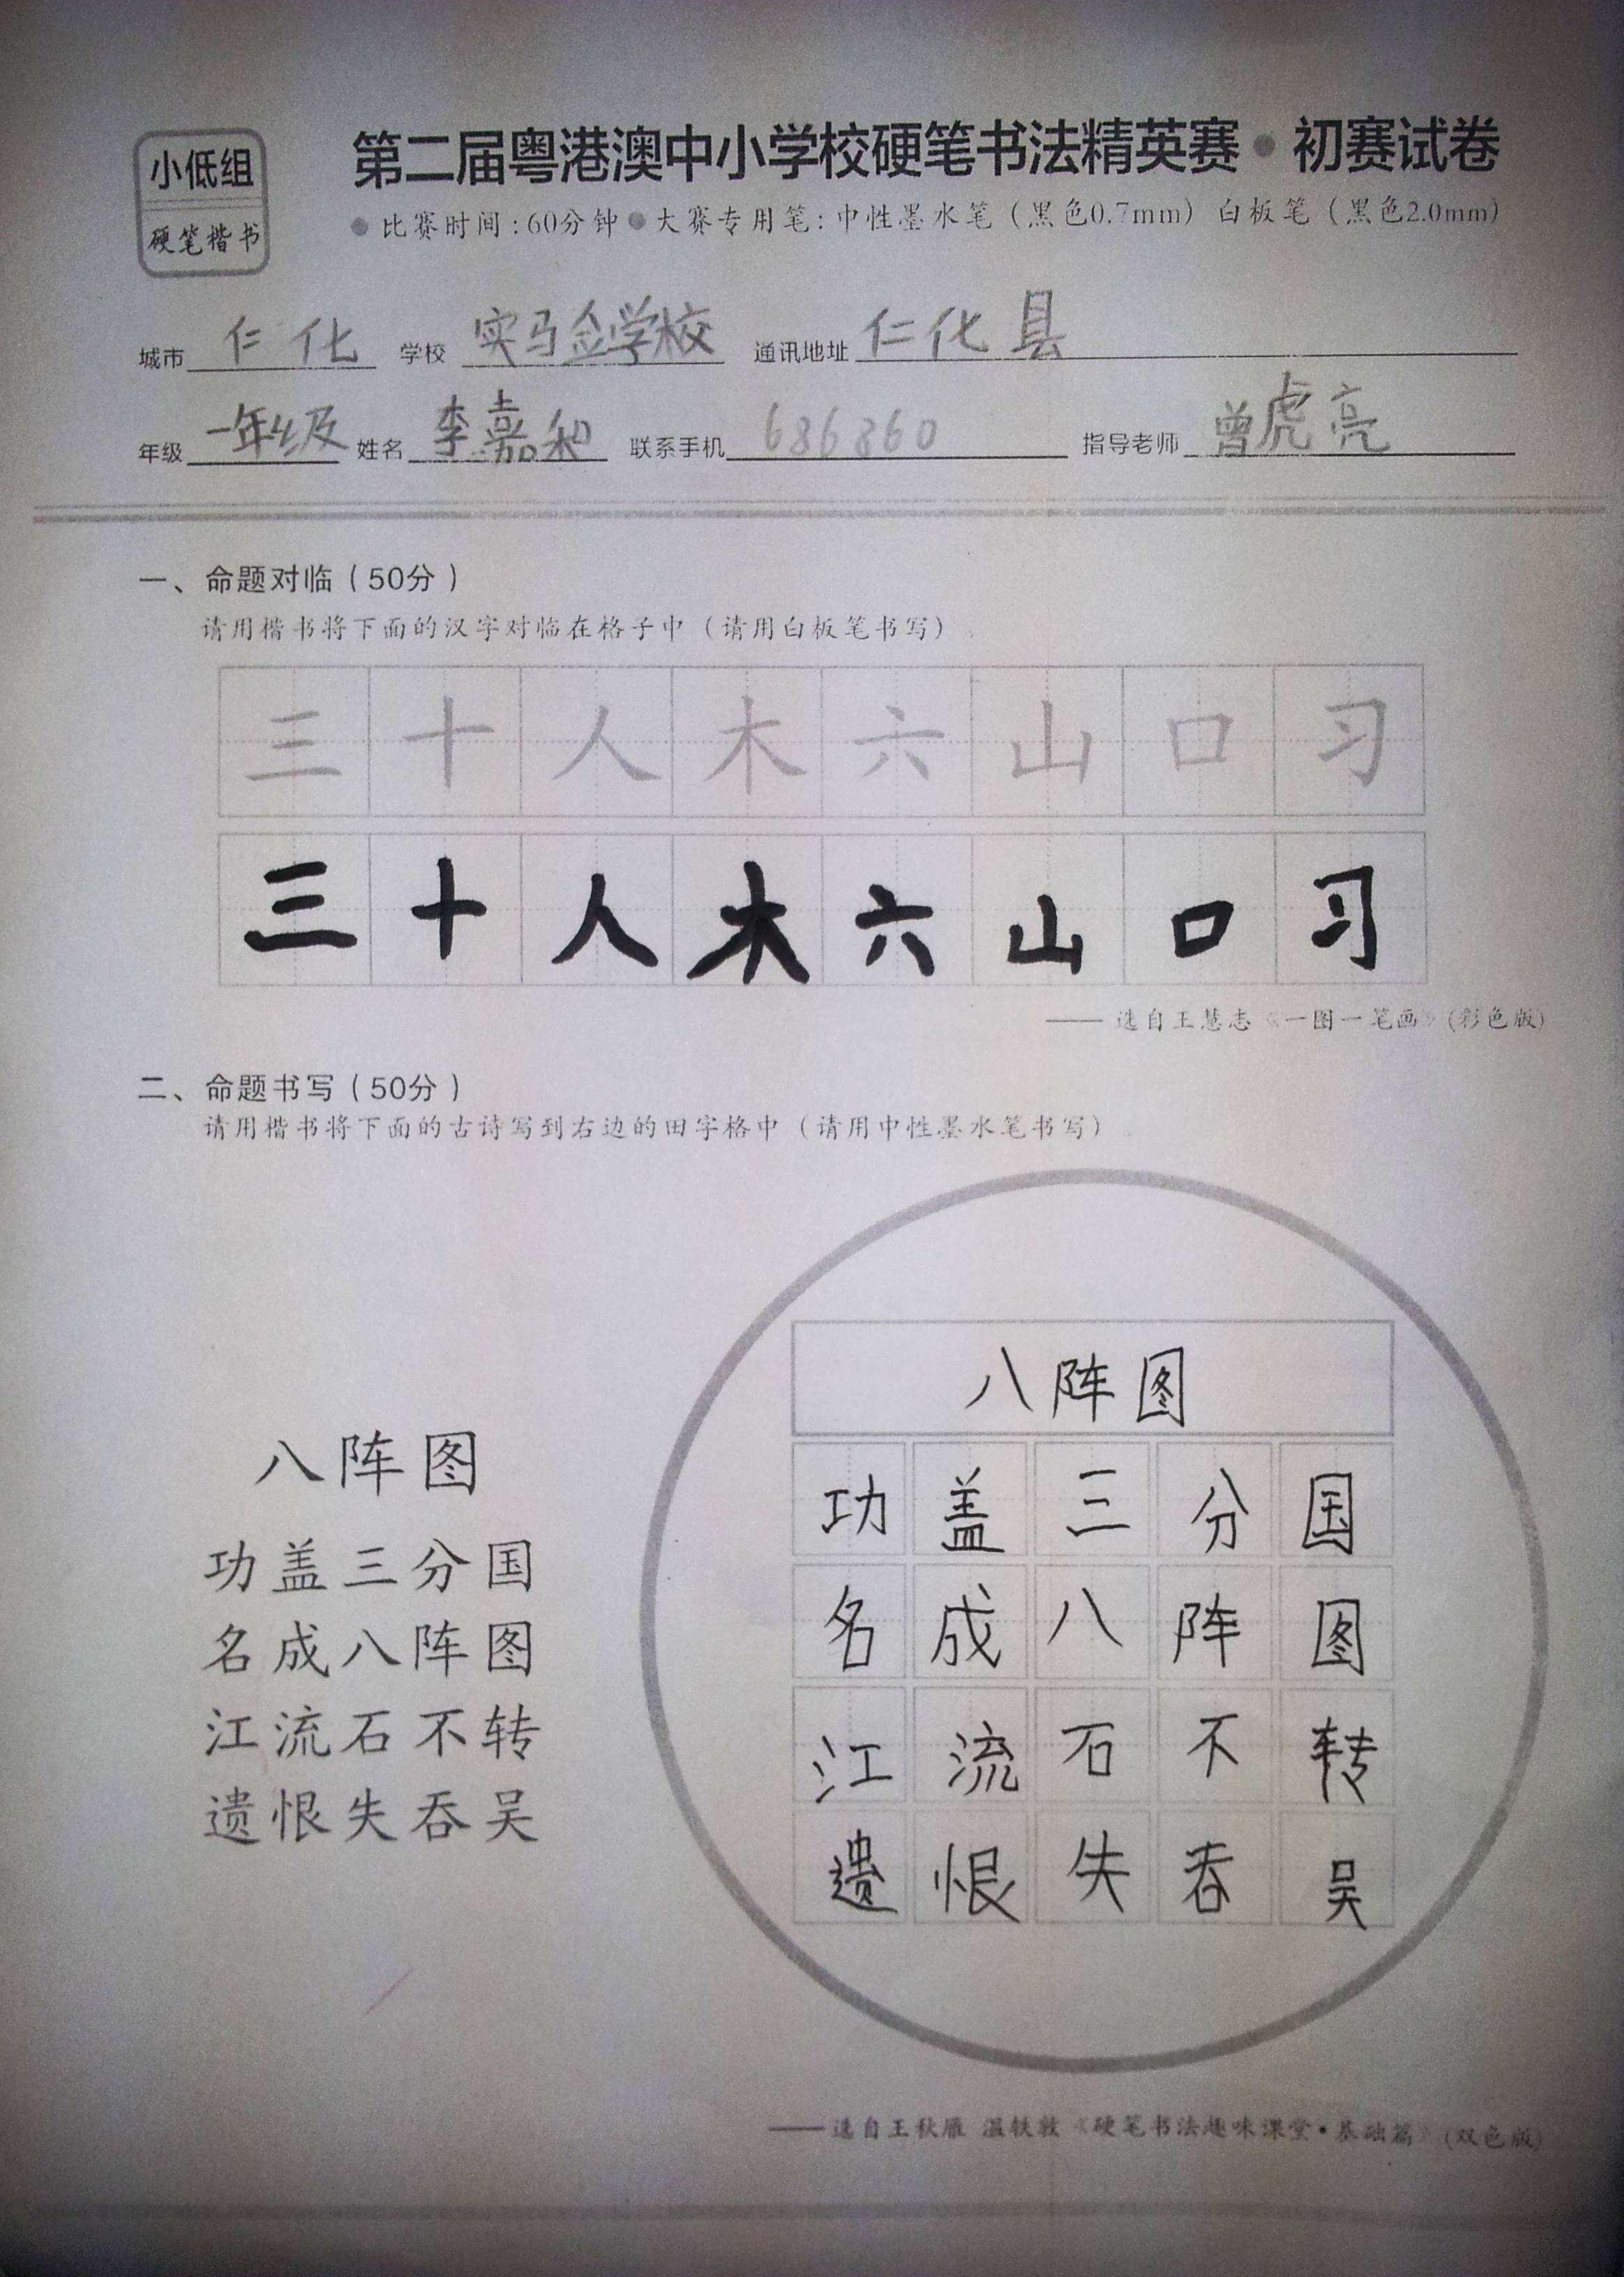 小低组
硬笔楷书
第二届粤港澳中小学校硬笔书法精英赛·初赛试卷
●比赛时间:60分钟●大赛专用笔:中性墨水笔(黑色0.7mm)白板笔(黑色2.0mm)
城市 仁化 学校 实验学校 通讯地址 仁化县
年级 一年级 姓名 李嘉和 联系手机 686860 指导老师 曾虎亮
一、命题对临(50分)
请用楷书将下面的汉字对临在格子中(请用白板笔书写)。
三十人木六山口习
三十人木六山口习
——选自王慧志《一图一笔画》(彩色版)
二、命题书写(50分)
请用楷书将下面的古诗写到右边的田字格中(请用中性墨水笔书写)。
八阵图
功盖三分国
名成八阵图
江流石不转
遗恨失吞吴
八阵图
功盖三分国
名成八阵图
江流石不转
遗恨失吞吴
——选自王秋雁 温轶敦《硬笔书法趣味课堂·基础篇》(双色版)